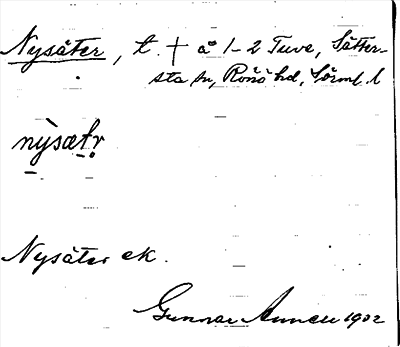 Nysäter, t. † å 1-2 Tuve, Sätter-
sta sn, Rönö hd, Sörml. l
nysætr
Nysäter ek.
Gunnar 1902